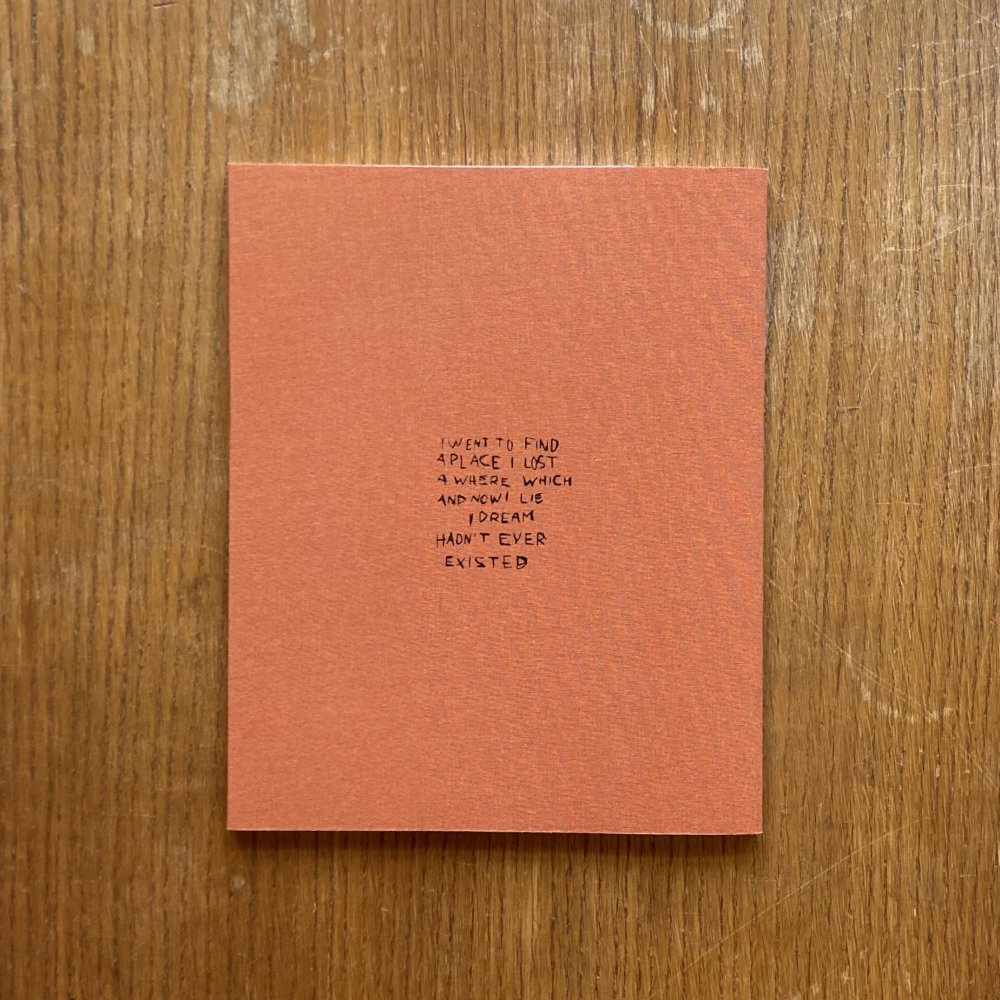 I WENT TO FIND
A PLACE I LOST
A WHERE WHICH
AND NOW I LIE
I DREAM
HADN'T EVER
EXISTED